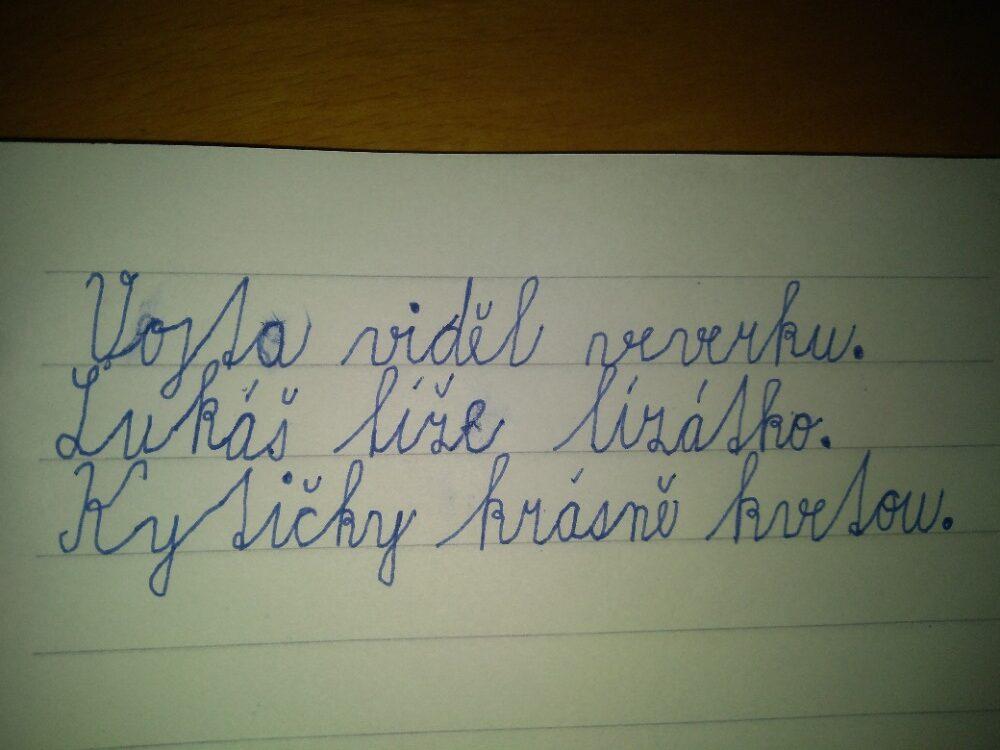 Vojta viděl veverku.
Lukáš líže lízátko.
Kytičky krásně kvetou.